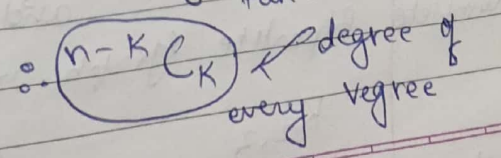 ∴ ⁿ⁻ᴷCₖ ← degree of
every vegree